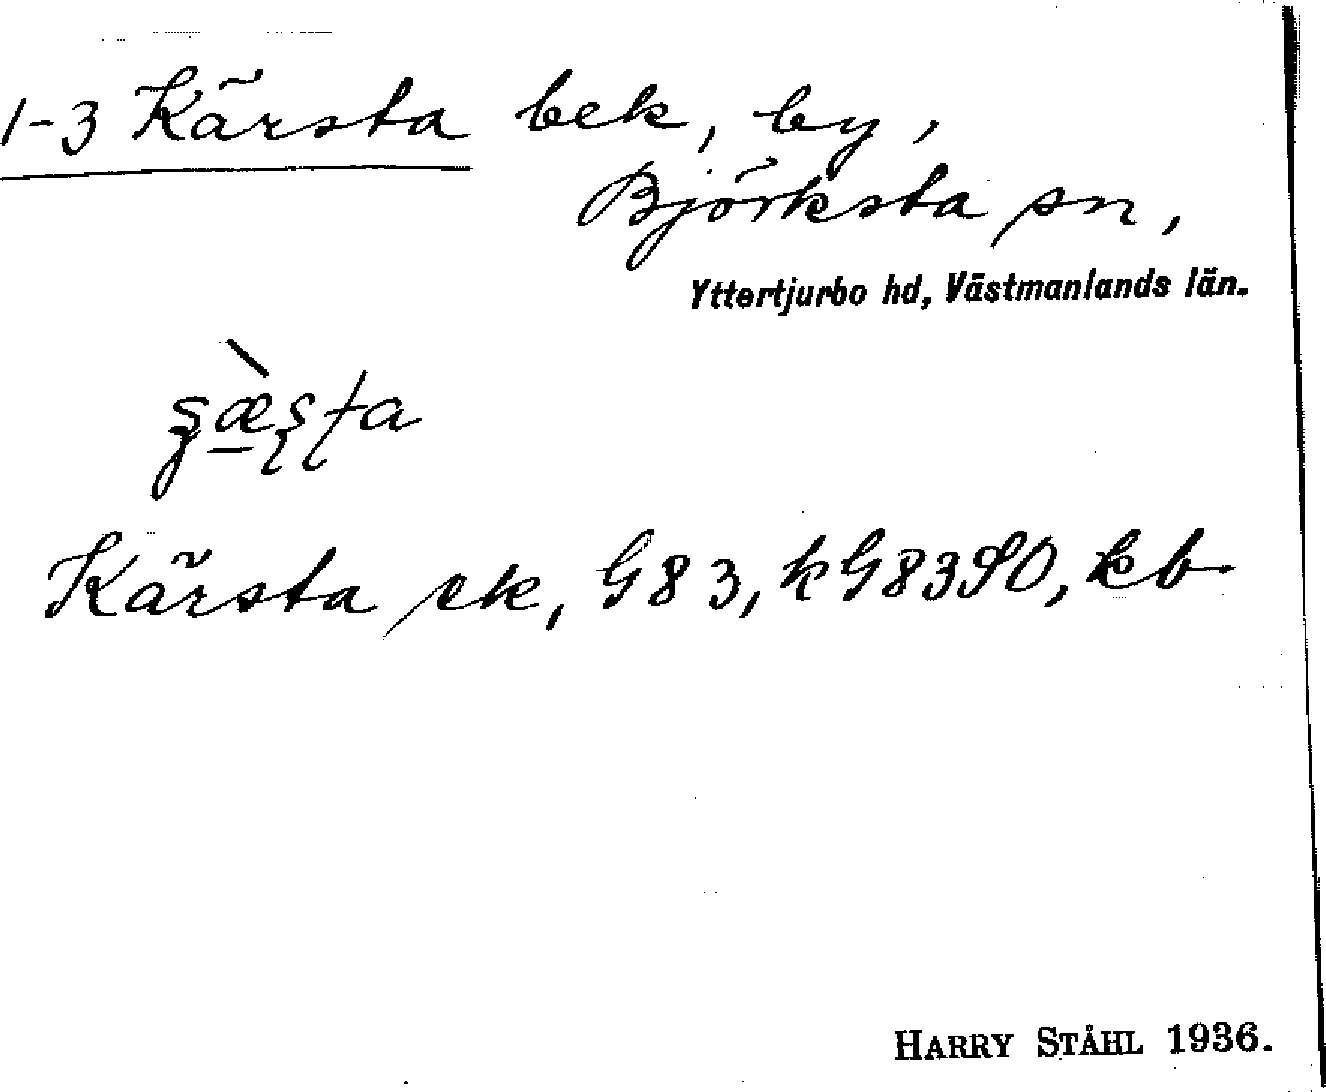 1-3 Kärsta bek, by,
Björksta sn,
Yttertjurbo hd, Västmanlands län.
Kärsta ek, G83, kG8390, kb
HARRY STÅHL 1936.